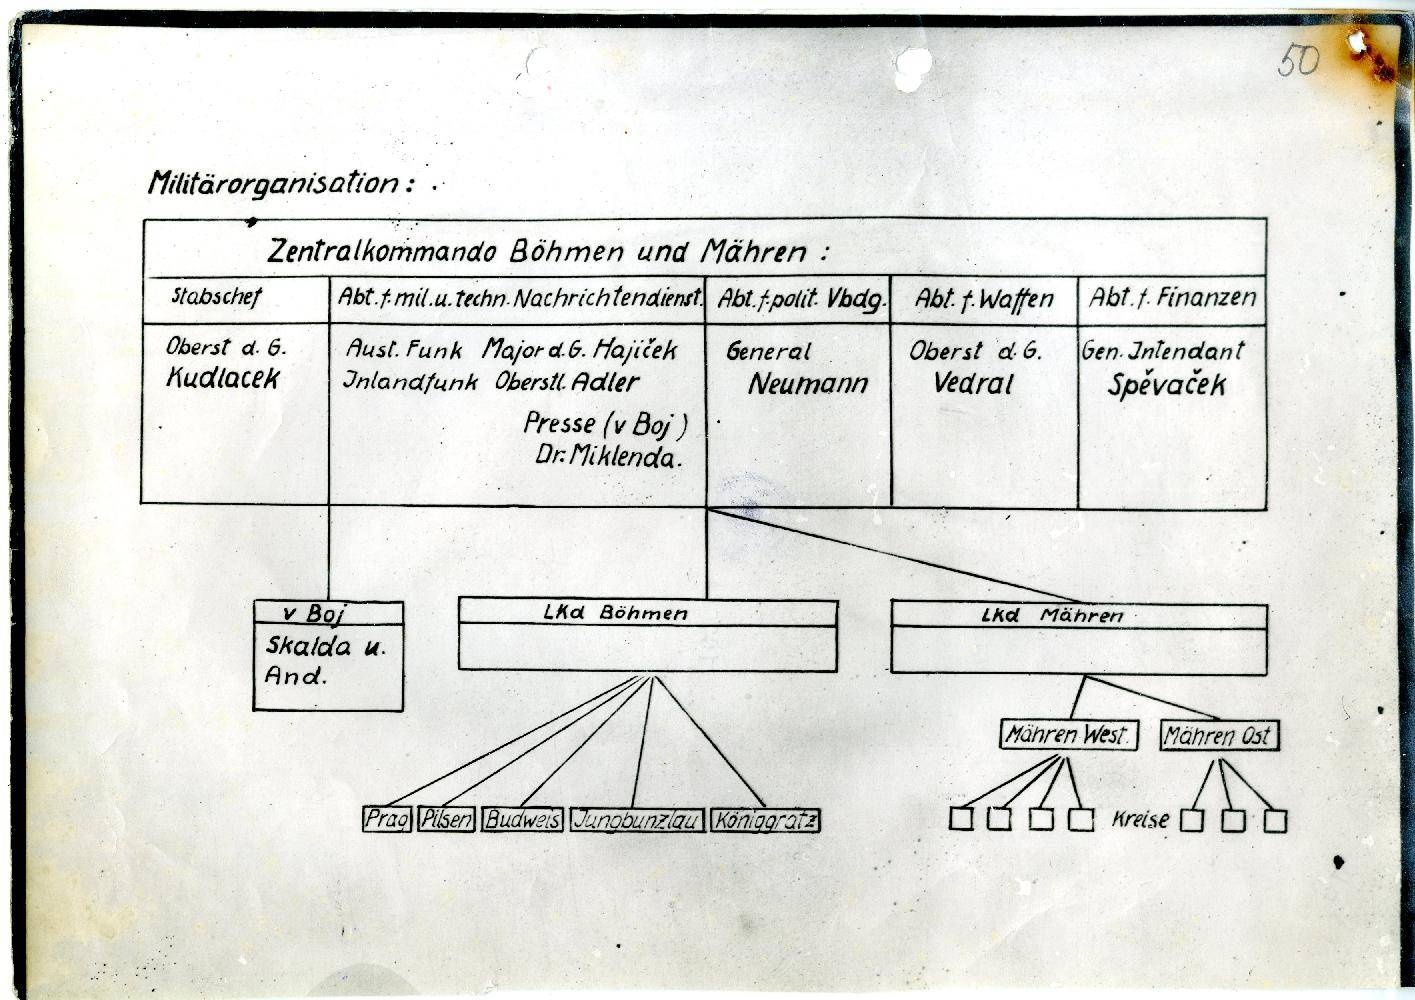 50
Militärorganisation:
Zentralkommando Böhmen und Mähren:
Stabschef
Abt. f. mil. u. techn. Nachrichtendienst.
Abt. f. polit. Vbdg.
Abt. f. Waffen
Abt. f. Finanzen
Oberst d. G.
Kudlacek
Ausl. Funk Major d. G. Hajíček
Inlandfunk Oberstl. Adler
Presse (v Boj)
Dr. Miklenda.
General
Neumann
Oberst d. G.
Vedral
Gen. Intendant
Spěvaček
v Boj
Skalda u.
And.
LKd Böhmen
Lkd Mähren
Mähren West.
Mähren Ost
Prag
Pilsen
Budweis
Jungbunzlau
Königgratz
Kreise